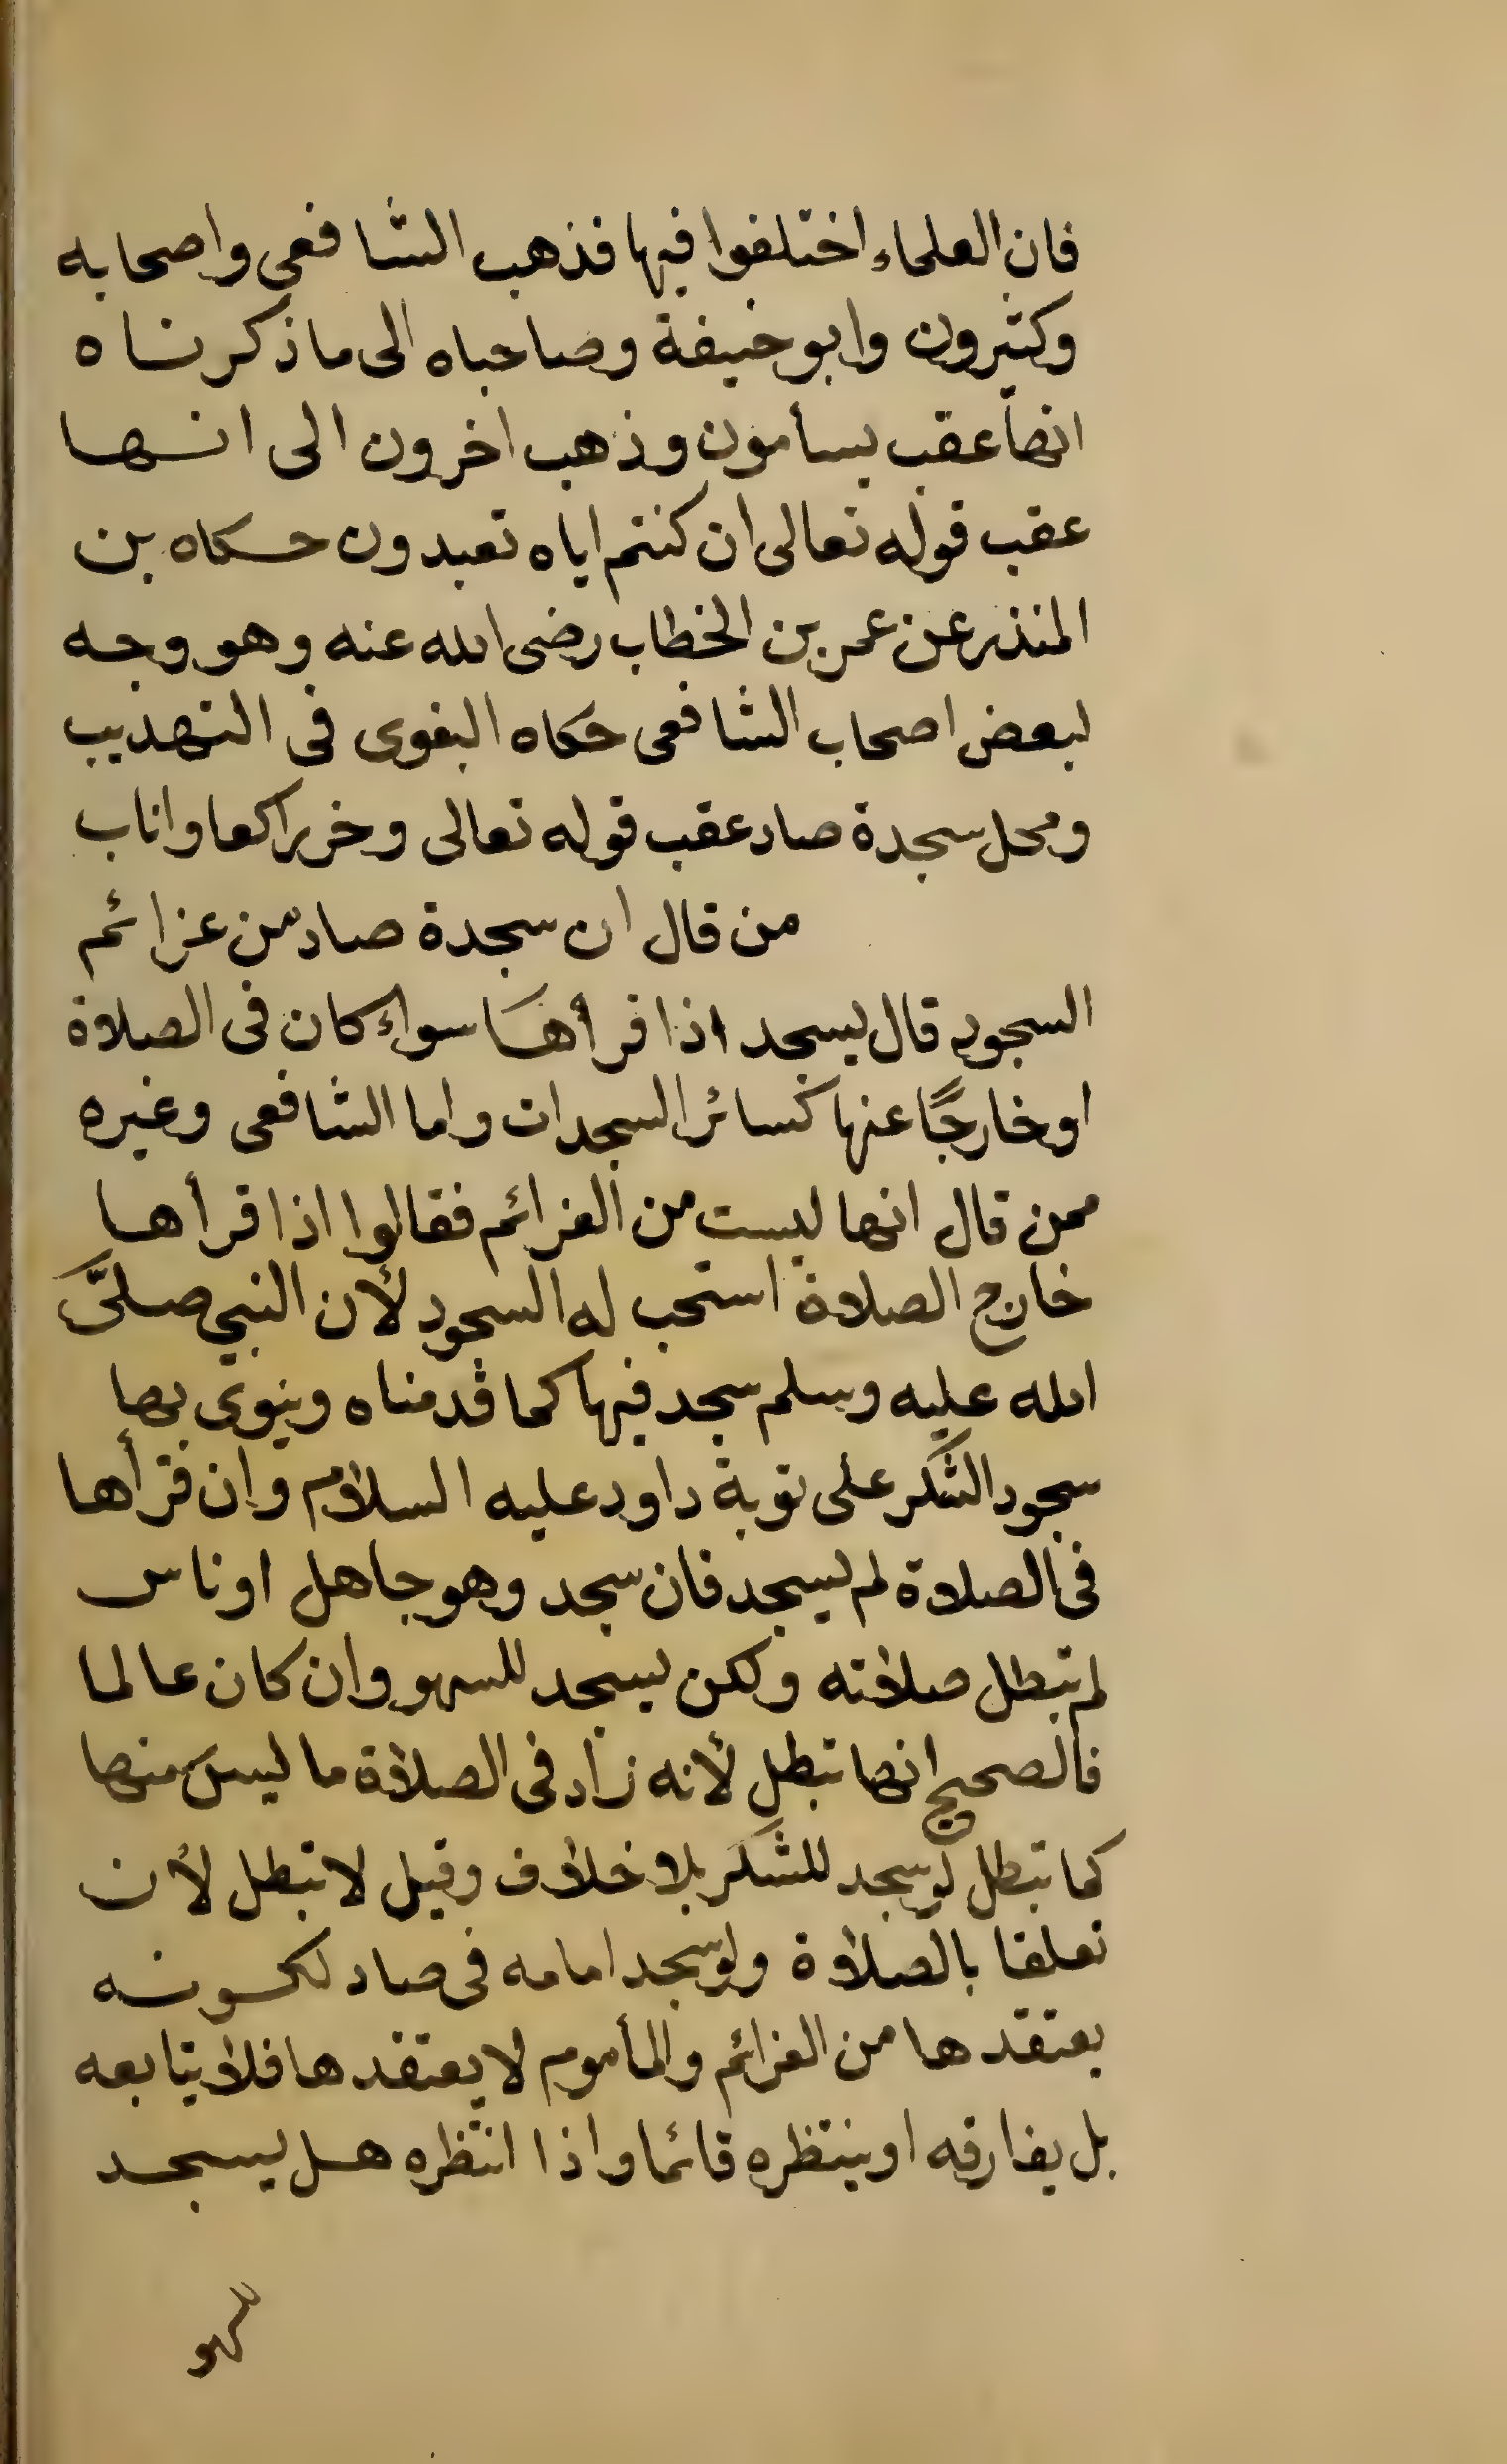 فان العلماء اختلفوا فيها فذهب الشافعى واصحابه
وكثيرون وابو حنيفة وصاحباه الى ما ذكرناه
انها عقب يسأمون وذهب اخرون الى انها
عقب قوله تعالى ان كنتم اياه تعبدون حكاه بن
المنذر عن عمر بن الخطاب رضى الله عنه وهو وجه
لبعض اصحاب الشافعى حكاه البغوى فى التهذيب
ومحل سجدة صاد عقب قوله تعالى وخر راكعا واناب
من قال ان سجدة صاد من عزائم
السجود قال يسجد اذا قرأها سواء كان فى الصلاة
او خارجًا عنها كسائر السجدات واما الشافعى وغيره
ممن قال انها ليست من العزائم فقالوا اذا قرأها
خارج الصلاة استحب له السجود لأن النبي صلىّ
الله عليه وسلم سجد فيها كما قدمناه وينوى بها
سجود الشكر على توبة داود عليه السلام وان قرأها
فى الصلاة لم يسجد فان سجد وهو جاهل او ناس
لم تبطل صلاته ولكن يسجد للسهو وان كان عالما
فالصحيح انها تبطل لأنه زاد فى الصلاة ما ليس منها
كما تبطل لو سجد للشكر بلا خلاف وقيل لا تبطل لأن
تعلقا بالصلاة ولو سجد امامه فى صاد لكونه
يعتقدها من العزائم والمأموم لا يعتقدها فلا يتابعه
بل يفارقه او ينتظره قائما واذا انتظره هل يسجد
للهو